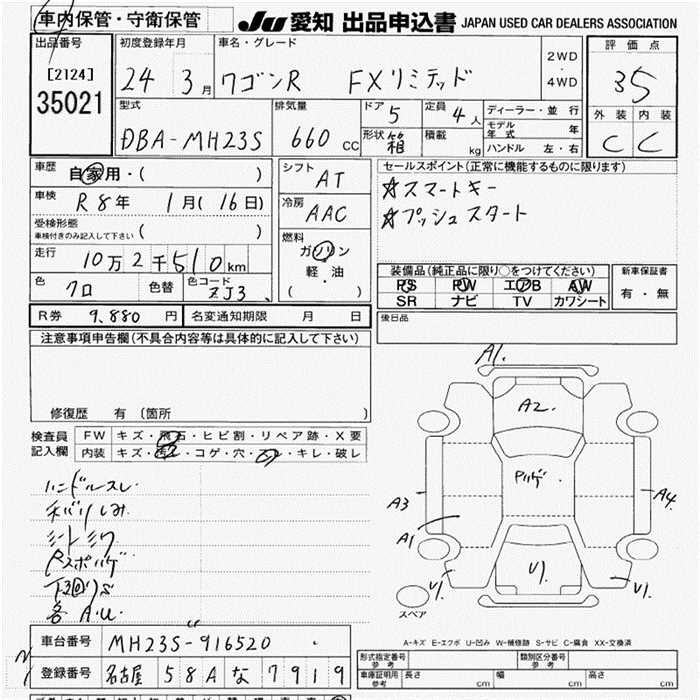 車内保管・守衛保管
JU 愛知 出品申込書 JAPAN USED CAR DEALERS ASSOCIATION
出品番号
[2124]
35021
初度登録年月
24 3月
車名・グレード
ワゴンR FXリミテッド
2WD
・
4WD
評価点
3.5
外装 内装
C C
型式
DBA-MH23S
排気量
660 CC
ドア 5
形状 箱
定員 4人
積載 kg
ディーラー・並行
モデル年式 年
ハンドル 左・右
車歴 自家用・( )
車検 R8年 1月(16日)
受検形態
車検付きのみ記入して下さい ( )
走行 10万2千510km
色 クロ 色替 色コード ZJ3
シフト AT
冷房 AAC
燃料
ガソリン
軽・油
( )
セールスポイント(正常に機能するものに限ります)
☆スマートキー
☆プッシュスタート
装備品(純正品に限り○をつけてください)
PS PW エアB AW
SR ナビ TV カワシート
新車保証書
有・無
R券 9,880円 名変通知期限 月 日
後日品
注意事項申告欄(不具合内容等は具体的に記入して下さい)
修復歴 有 (箇所 )
検査員記入欄
FW キズ・飛石・ヒビ割・リペア跡・X要
内装 キズ・汚レ・コゲ・穴・スレ・キレ・破レ
ハンドルスレ
シートシワ
各A.U.
A1.
A2
A3
A4
A1
V1.
V1.
V1.
スペア
A-キズ E-エクボ U-凹み W-補修跡 S-サビ C-腐食 XX-交換済
車台番号 MH23S-916520
登録番号 名古屋 58A な 7919
形式指定番号 参考
類別区分番号 参考
車庫証明用 参考 長さ cm 幅 cm 高さ cm